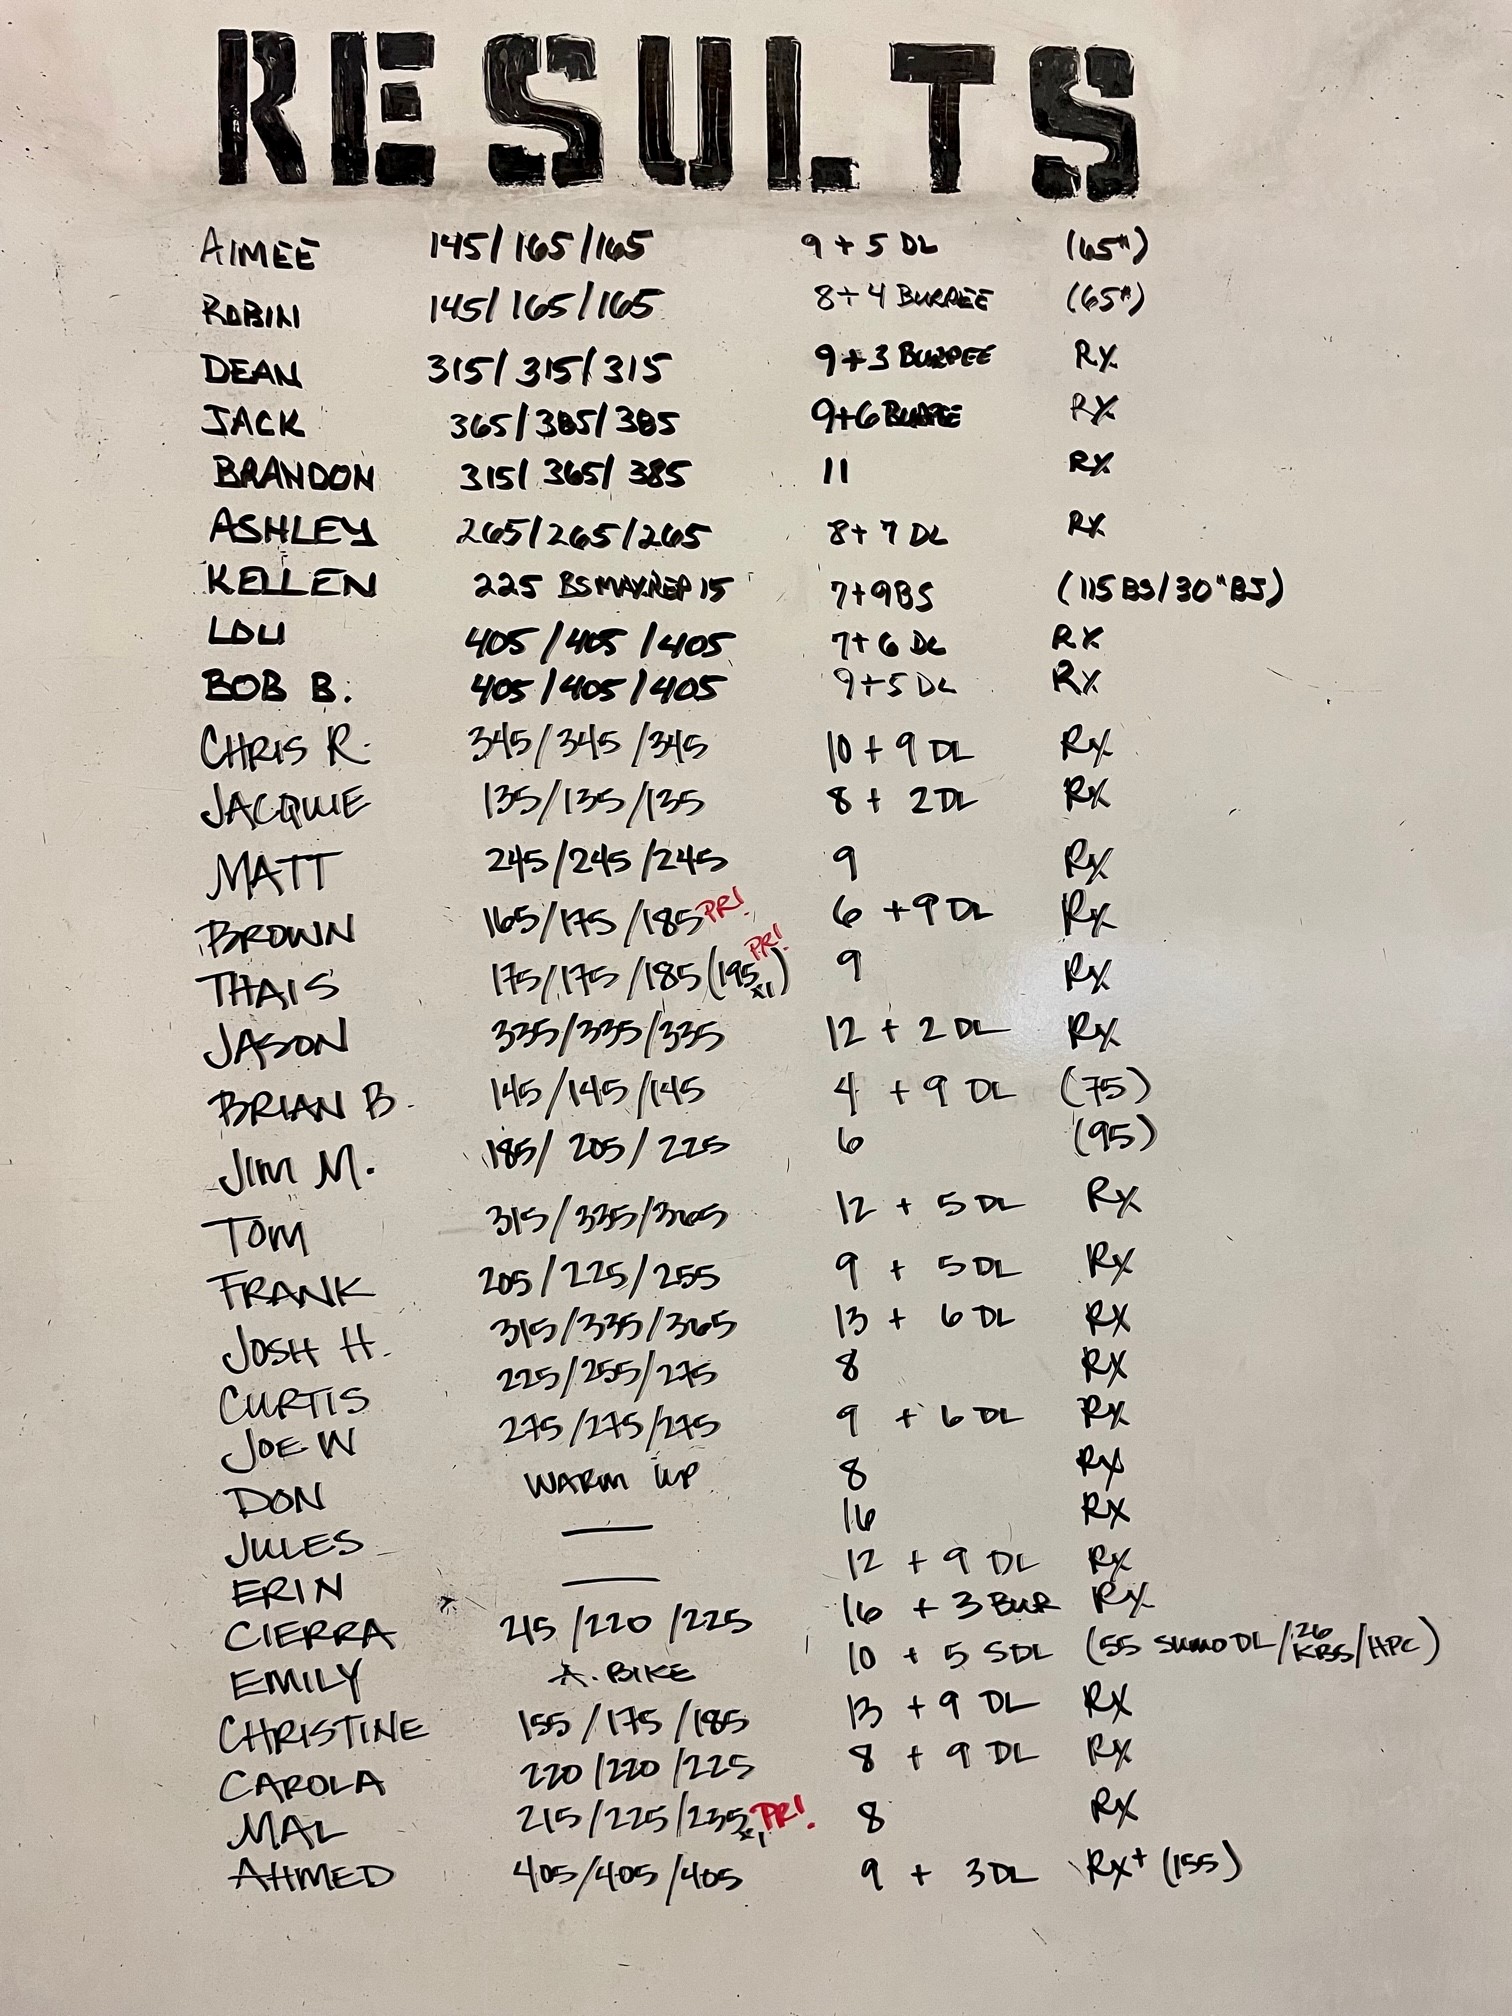 RESULTS
AIMEE 145/165/165 9 + 5 DL (65#)
ROBIN 145/165/165 8 + 4 BURPEE (65#)
DEAN 315/315/315 9 + 3 BURPEE RX
JACK 365/385/385 9+6 BURPEE RX
BRANDON 315/365/385 11 RX
ASHLEY 265/265/265 8 + 7 DL RX
KELLEN 225 BS MAX REP 15 7+9BS (115 BS/30" BJ)
LOU 405/405/405 7+ 6 DL RX
BOB B. 405/405/405 9+5 DL RX
CHRIS R. 345/345/345 10 + 9 DL RX
JACQUIE 135/135/135 8 + 2 DL RX
MATT 245/245/245 9 RX
BROWN 165/175/185 PR! 6 + 9 DL RX
THAIS 175/175/185 (195 x1) PR! 9 RX
JASON 335/335/335 12 + 2 DL RX
BRIAN B. 145/145/145 4 + 9 DL (75)
JIM M. 185/205/225 6 (95)
TOM 315/335/365 12 + 5 DL RX
FRANK 205/225/255 9 + 5 DL RX
JOSH H. 315/335/365 13 + 6 DL RX
CURTIS 225/255/275 8 RX
JOE W 275/275/275 9 + 6 DL RX
DON WARM UP 8 RX
JULES — 16 RX
ERIN — 12 + 9 DL RX
CIERRA 215/220/225 16 + 3 BUR RX
EMILY A. BIKE 10 + 5 SDL (55 SUMO DL/26 KBS/HPC)
CHRISTINE 155/175/185 13 + 9 DL RX
CAROLA 220/220/225 8 + 9 DL RX
MAL 215/225/235 x1 PR! 8 RX
AHMED 405/405/405 9 + 3 DL RX+ (155)